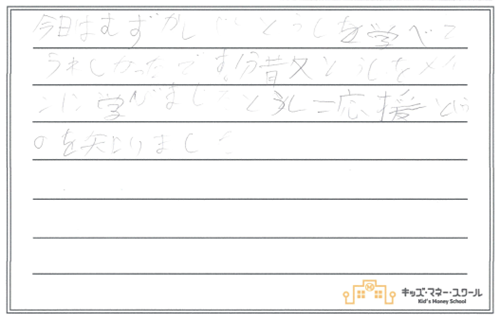 今日はむずかしいとうしを学べて
うれしかったです。今昔又とうしをメイ
ンに学びました とうし=応援と
のを知りました
キッズ・マネー・スクール
Kid's Money School